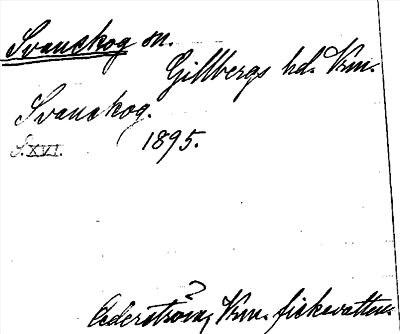 Svanskog sn.
Gillbergs hd. Vrm.
Svanskog.
S.XVI. 1895.
Cederström, Vrm. fiskevatten.